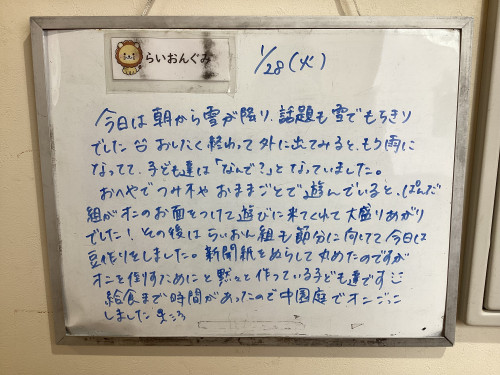 らいおんぐみ
1/28(火)
今日は朝から雪が降り、話題も雪でもちきり
でした おしたく終わって外に出てみると、もう雨に
なってて、子ども達は「なんで?」となっていました。
おへやでつみ木やおままごとで遊んでいると、ぱんだ
組がオニのお面をつけて遊びに来てくれて大盛りあがり
でした! その後はらいおん組も節分に向けて今日は
豆作りをしました。新聞紙をぬらして丸めたのですが
オニを倒すためにと黙々と作っている子ども達です
給食まで時間があったので中園庭でオニごっこ
しました